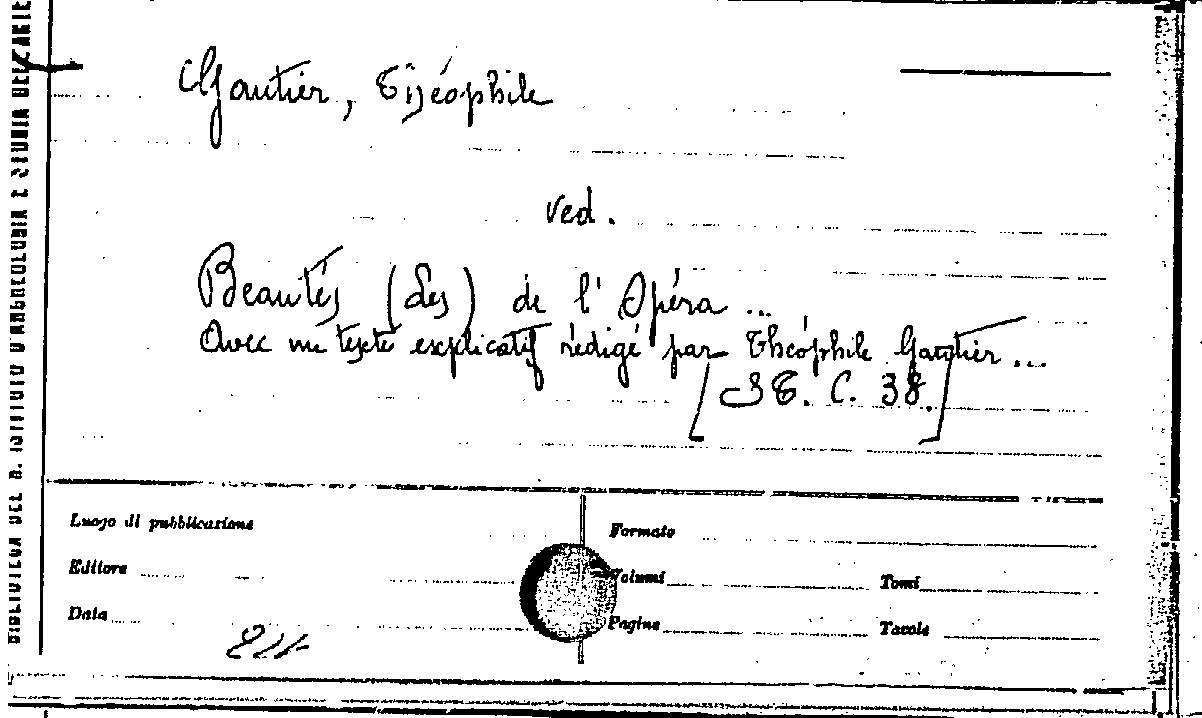 BIBLIOTECA DEL R. ISTITUTO D'ARCHEOLOGIA E STORIA DELL'ARTE
Gautier, Théophile
ved.
Beautés (Les) de l'Opéra ...
Avec un texte explicatif rédigé par Théophile Gautier ...
C. 38.]
Luogo di pubblicazione
Formato
Editore
Volumi
Tomi
Data
Pagine
Tavole